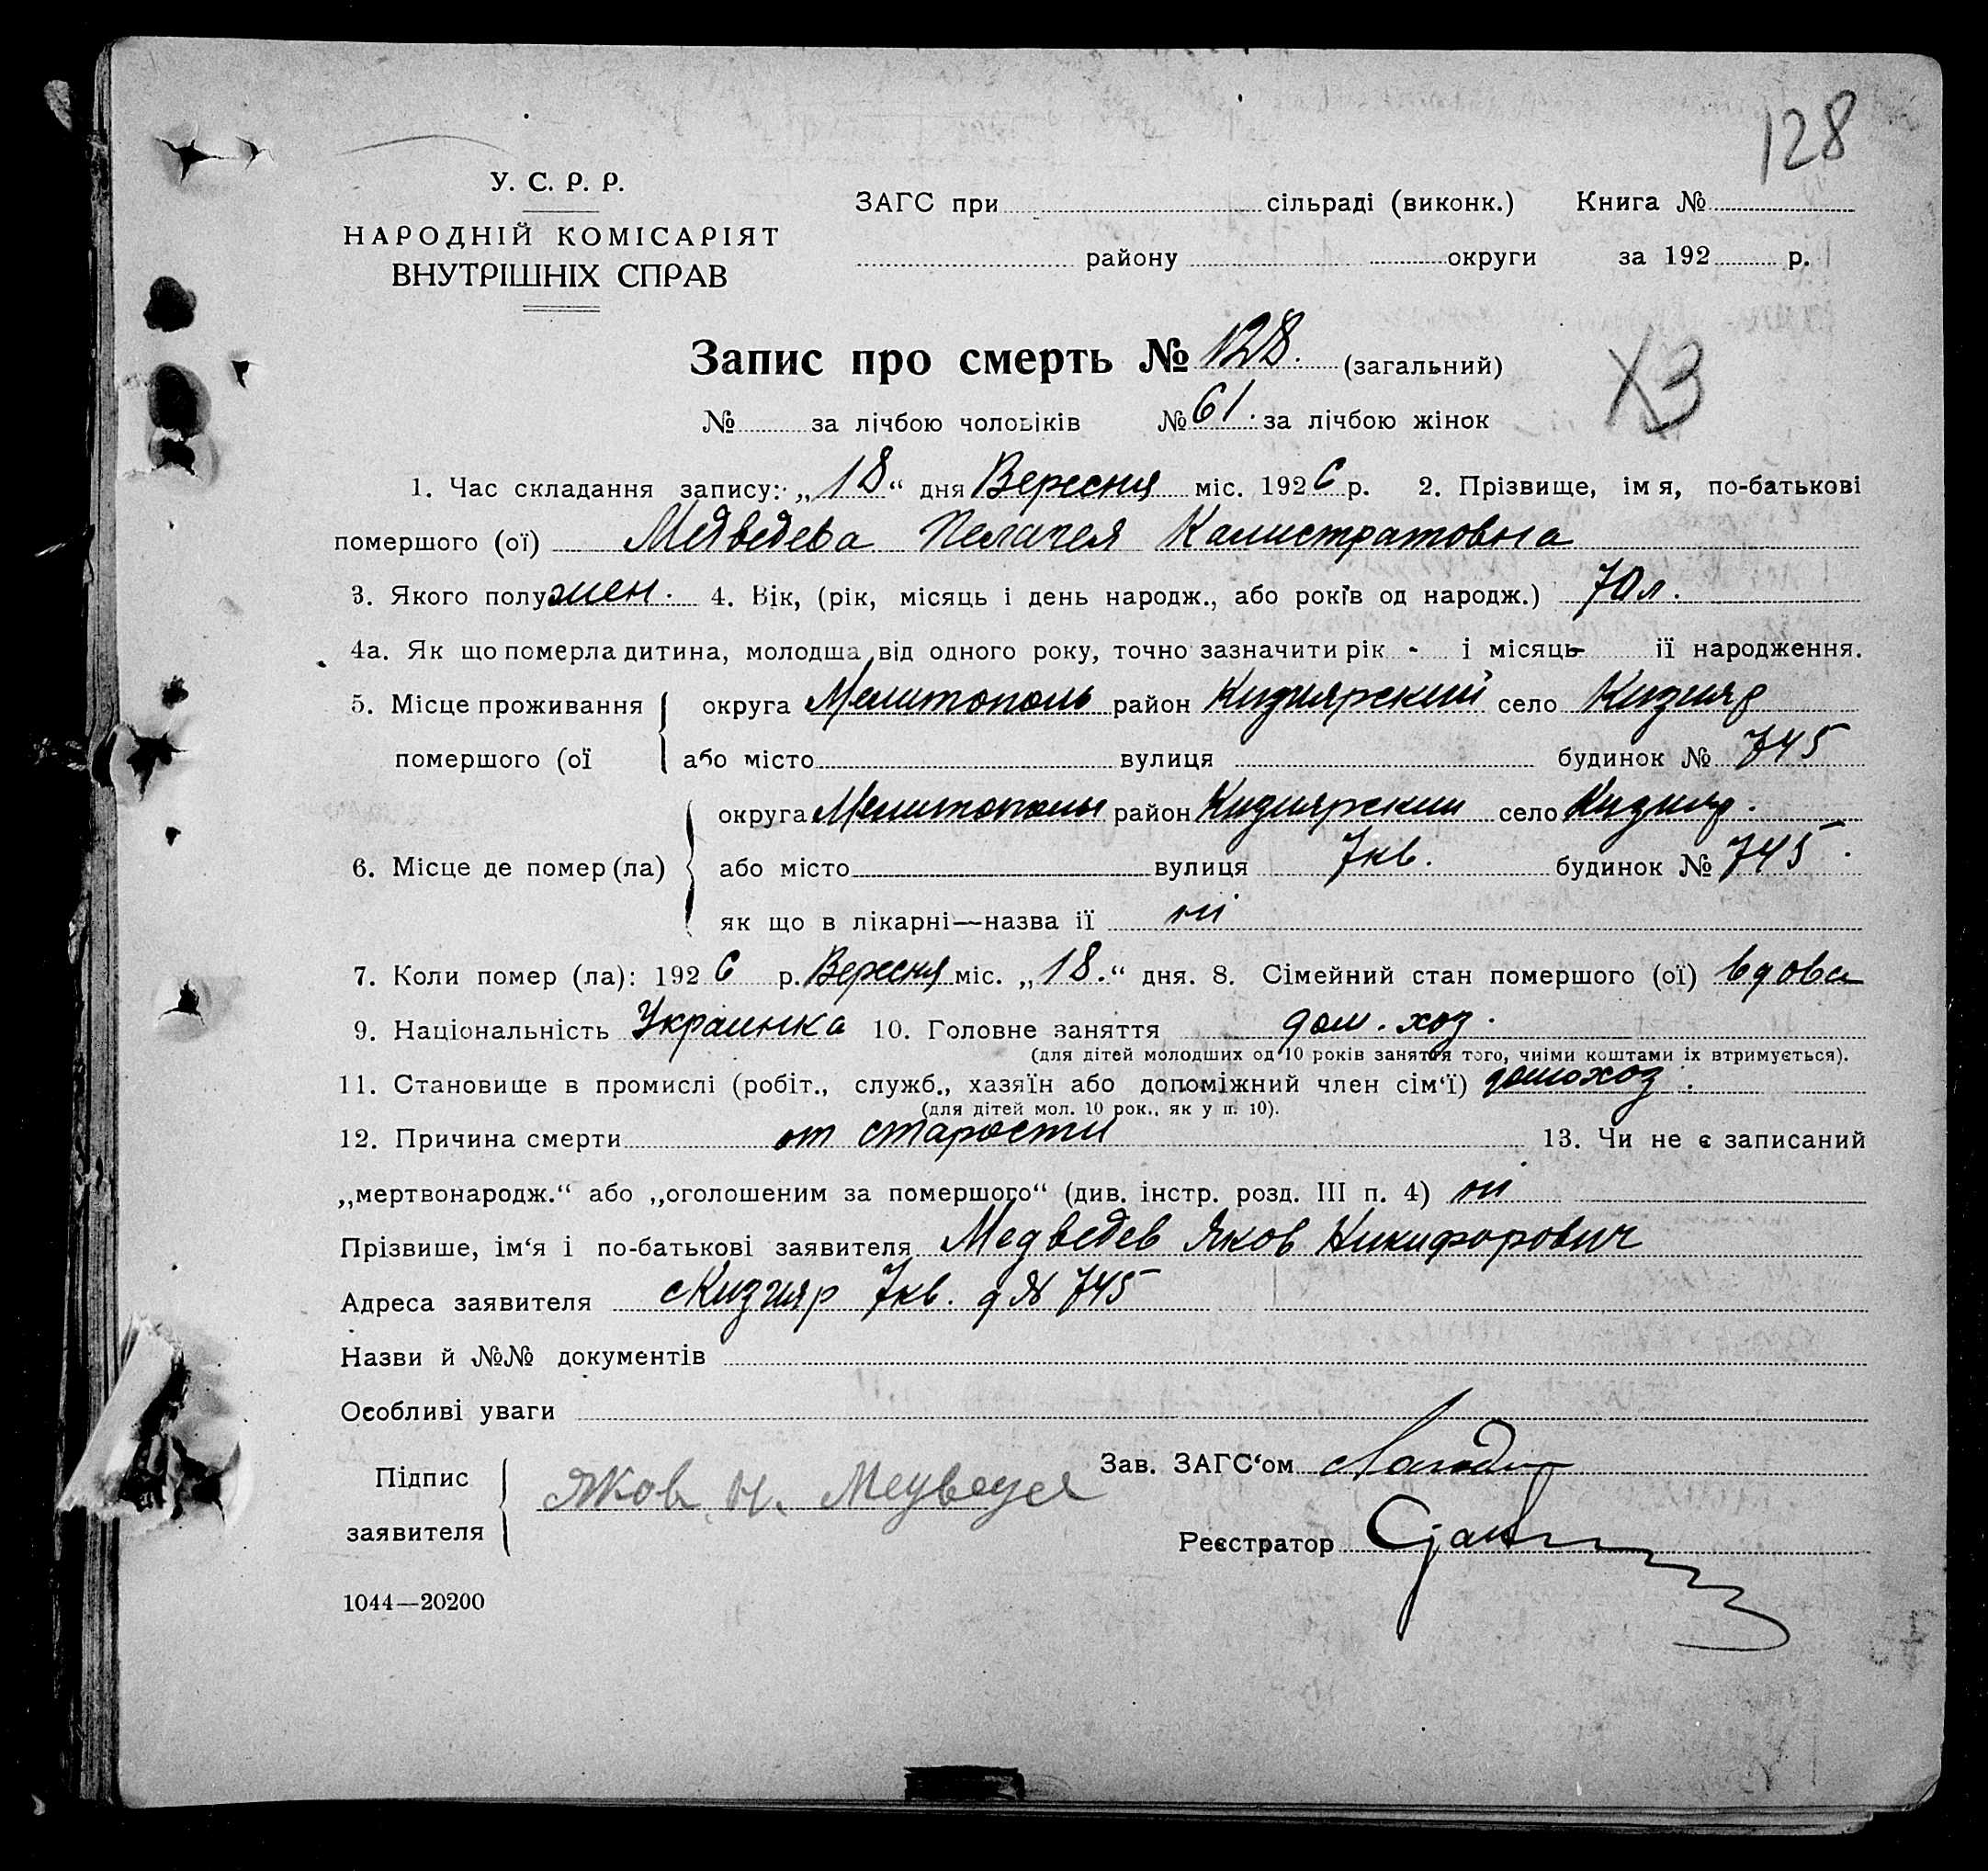 128
У. С. Р. Р.
НАРОДНІЙ КОМІСАРІЯТ
ВНУТРІШНІХ СПРАВ
ЗАГС при сільраді (виконк.) Книга №
району округи за 192 р.
Запис про смерть № 128. (загальний)
ХЗ
№ за лічбою чоловіків № 61. за лічбою жінок
1. Час складання запису: „18“ дня Вересня міс. 1926 р. 2. Прізвище, імя, по-батькові
помершого (ої) Медведева Пелагея Калистратовна
3. Якого полу жен. 4. Вік, (рік, місяць і день народж., або років од народж.) 70 л.
4а. Як що померла дитина, молодша від одного року, точно зазначити рік - і місяць - її народження.
5. Місце проживання округа Мелитополь район Кизиярский село Кизияр
помершого (ої або місто вулиця будинок № 745
округа Мелитополь район Кизиярский село Кизияр.
6. Місце де помер (ла) або місто вулиця 7 кв. будинок № 745.
як що в лікарні—назва її ні
7. Коли помер (ла): 1926 р. Вересня міс. „18.“ дня. 8. Сімейний стан помершого (ої) вдова
9. Національність Украинка 10. Головне заняття дом. хоз.
(для дітей молодших од 10 років заняття того, чиїми коштами їх втримується).
11. Становище в промислі (робіт., служб., хазяїн або допоміжний член сім'ї) домохоз.
(для дітей мол. 10 рок., як у п. 10).
12. Причина смерти от старости 13. Чи не є записаний
„мертвонародж.“ або „оголошеним за помершого“ (див. інстр. розд. III п. 4) ні
Прізвише, ім'я і по-батькові заявителя Медведев Яков Никифорович
Адреса заявителя с Кизияр 7 кв. д № 745
Назви й №№ документів
Особливі уваги
Підпис
заявителя
Яков Н. Медведев
Зав. ЗАГС'ом
Реєстратор
1044—20200